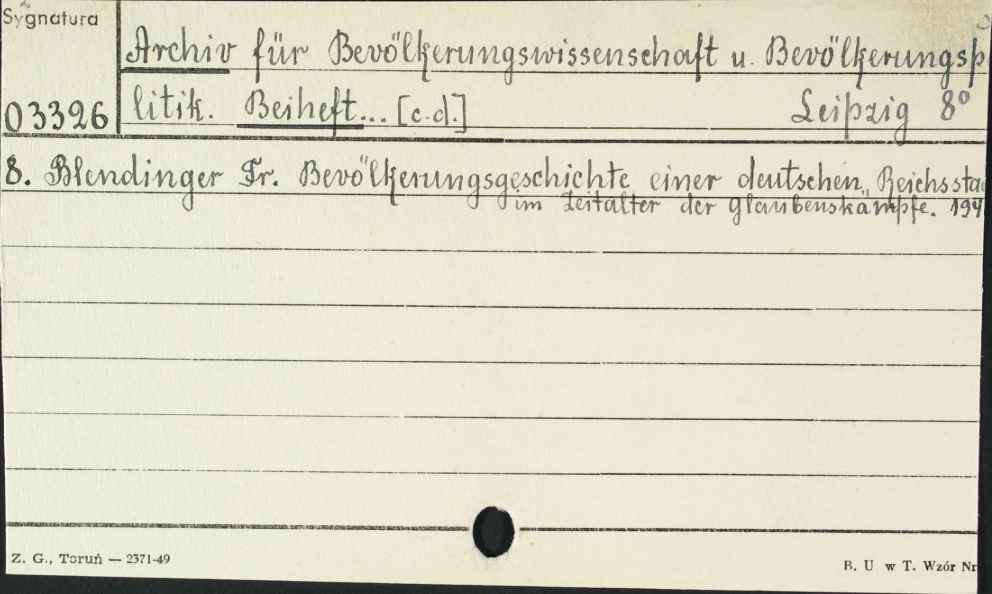 Sygnatura
Archiv für Bevölkerungswissenschaft u. Bevölkerungsp
03326 litik. Beiheft... [c.d.] Leipzig 8°
8. Blendinger Fr. Bevölkerungsgeschichte einer deutschen Reichssta
im Zeitalter der Glaubenskämpfe. 194
Z. G., Toruń — 2371-49
B. U w T. Wzór Nr